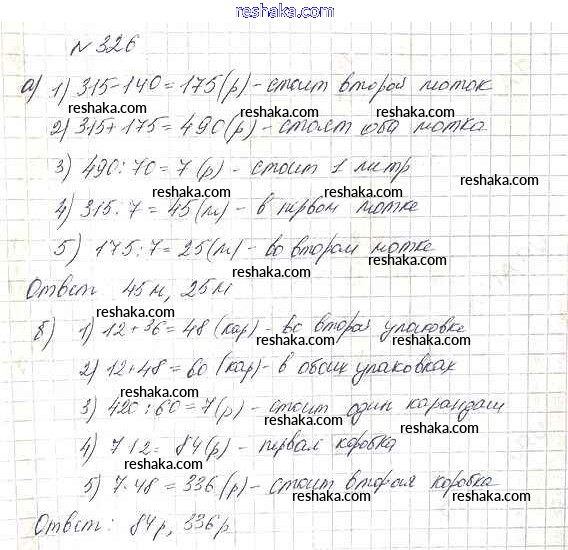 reshaka.com
№ 326
а) 1) 315-140=175(р) - стоит второй моток
reshaka.com reshaka.com
2) 315+175=490(р) - стоят оба мотка
reshaka.com reshaka.com
3) 490:70=7(р) - стоит 1 литр
reshaka.com reshaka.com
4) 315:7=45(м) - в первом мотке
reshaka.com reshaka.com
5) 175:7=25(м) - во втором мотке
reshaka.com
Ответ 45м, 25м
reshaka.com reshaka.com
б) 1) 12+36=48(кар) - во второй упаковке
reshaka.com reshaka.com
2) 12+48=60(кар) - в обеих упаковках
reshaka.com reshaka.com
3) 420:60=7(р) - стоит один карандаш
reshaka.com reshaka.com
4) 7 12= 84(р) - первая коробка
reshaka.com reshaka.com
5) 7·48=336(р) - стоит вторая коробка
reshaka.com reshaka.com
Ответ: 84р, 336р
reshaka.com reshaka.com